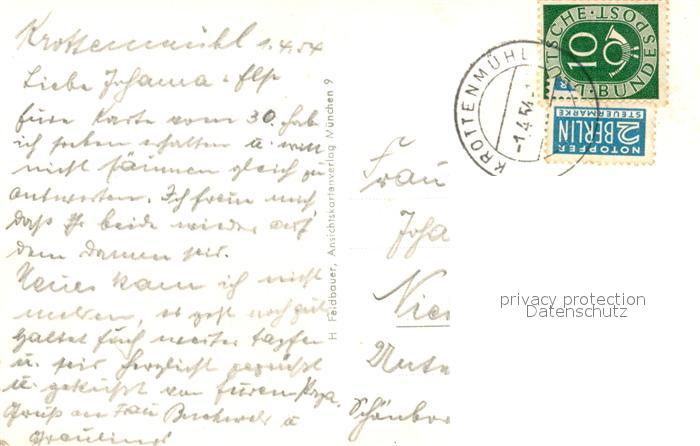 Krottenmühl 1.4.54
Liebe Johanna u. Else
Eure Karte vom 30. hab
ich soeben erhalten u. will
nicht säumen gleich zu
antworten. Ich freue mich
daß Ihr beide wieder auf
dem Damm seid.
Neues kann ich nicht
melden, es geht noch gut
Haltet Euch weiter tapfer
u. seid herzlichst gegrüßt
u. geküßt von Eurem Papa
Gruß an Frau u.
H. Feldbauer, Ansichtskartenverlag München 9
Frau
Joha
Nied
Unte
Schönbor
KROTTENMÜHL
-1.4.54
DEUTSCHE BUNDESPOST
10
NOTOPFER
2 BERLIN
STEUERMARKE
privacy protection
Datenschutz